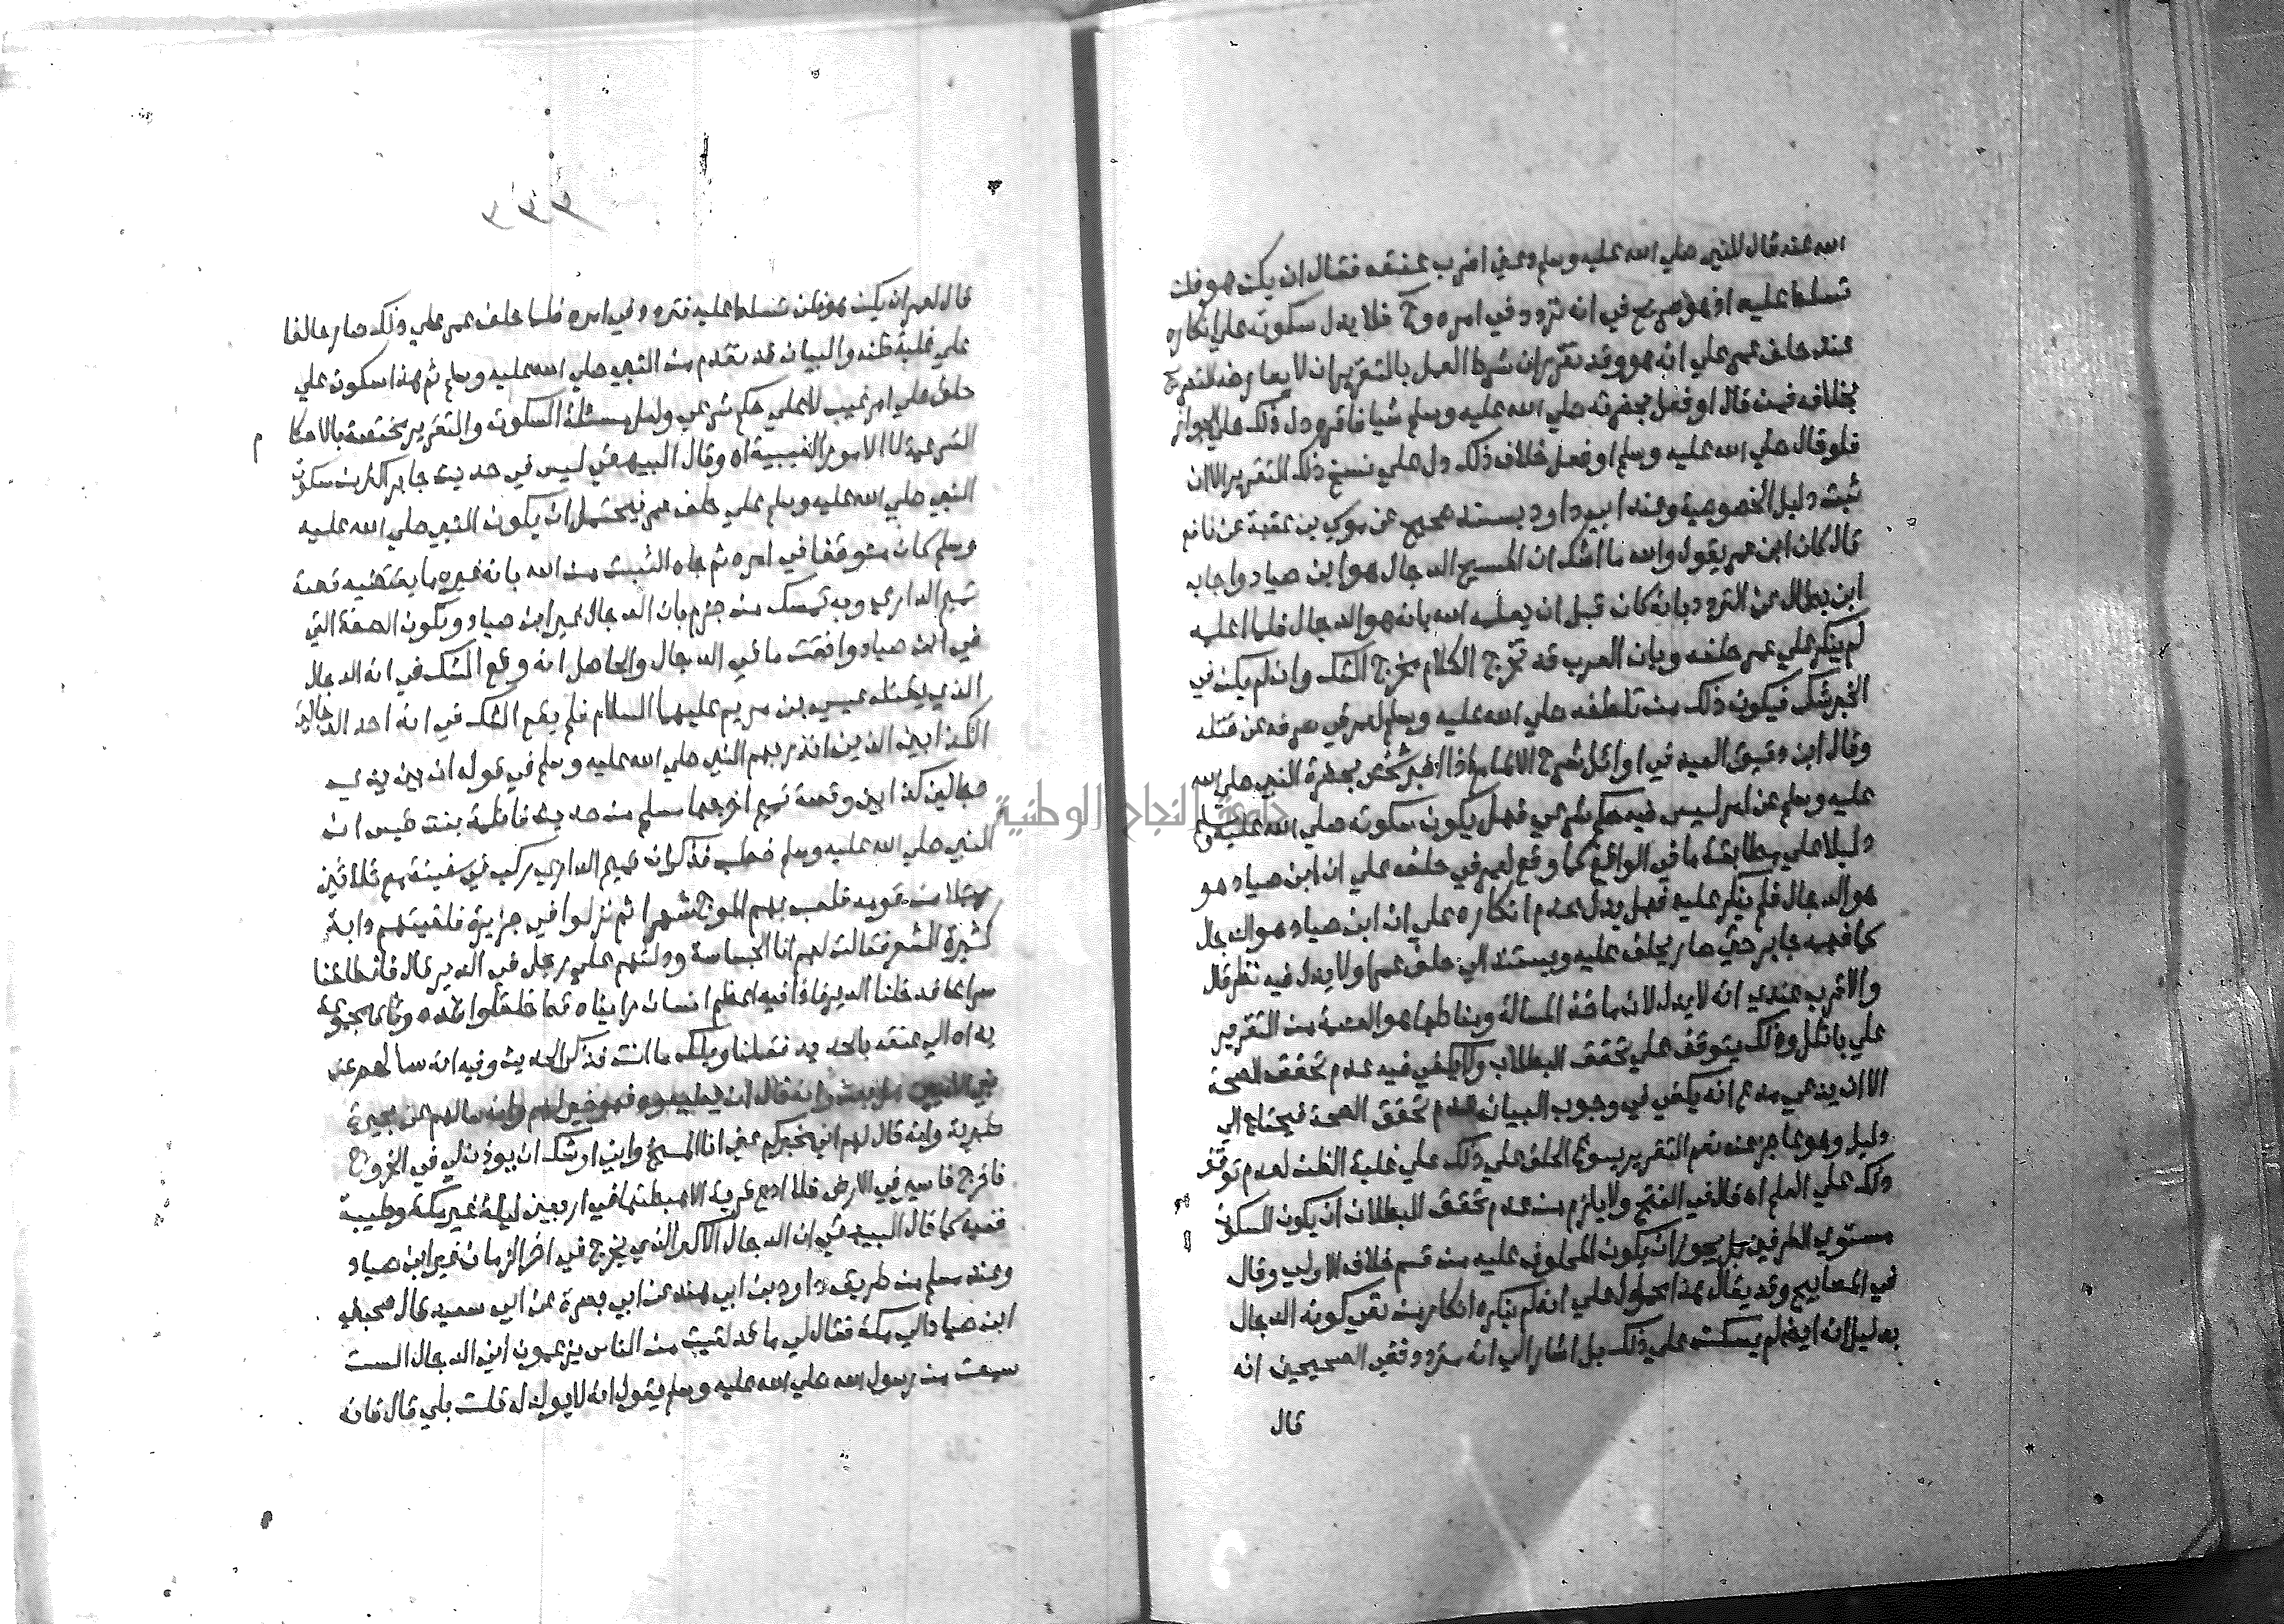 الله عنه قال للنبي صلي الله عليه وسلم دعني اضرب عنقه فقال ان يكن هو فلن
تسلط عليه اذ هو صريح في انه تردد في امره وح فلا يدل سكوته علي انكاره
عند حلف عمر علي انه هو وقد تقرر ان شرط العمل بالتقرير ان لا يعارضه التصريح
بخلافه فمن قال او فعل بحضرته صلي الله عليه وسلم شيا فاقره دل ذلك علي الجواز
فلو قال صلي الله عليه وسلم او فعل خلاف ذلك دل علي نسخ ذلك التقرير الا ان
ثبت دليل الخصوصية وعند ابي داود بسند صحيح عن موسي بن عقبة عن نافع
قال كان ابن عمر يقول والله ما اشك ان المسيح الدجال هو ابن صياد واجاب
ابن بطال عن التردد بانه كان قبل ان يعلمه الله بانه هو الدجال فلما اعلمه
لم ينكر علي عمر حلفه وبان العرب قد تخرج الكلام مخرج الشك وان لم يكن في
الخبر شك فيكون ذلك من تلطفه صلي الله عليه وسلم لعمر في صرفه عن قتله
وقال ابن دقيق العيد في اوائل شرح الالمام اذا اخبر شخص بحضرة النبي صلي الله
عليه وسلم عن امر ليس فيه حكم شرعي فهل يكون سكوته صلي الله عليه وسلم
دليلا علي مطابقة ما في الواقع كما وقع لعمر في حلفه علي ان ابن صياد هو
هو الدجال فلم ينكر عليه فهل يدل عدم انكاره علي ان ابن صياد هو الدجال
كما فهمه جابر حتي صار يحلف عليه ويستند الي حلف عمر او لا يدل فيه نظر قال
والاقرب عندي انه لا يدل لان ماخذ المسالة ومناطها هو العصمة من التقرير
علي باطل وذلك يتوقف علي تحقق البطلان ولا يكفي فيه عدم تحقق الصحة
الا ان يدعي مدع انه يكفي في وجوب البيان عدم تحقق الصحة فيحتاج الي
دليل وهو عاجز عنه نعم التقرير يسوغ الحلف علي ذلك علي غلبة الظن لعدم توقف
ذلك علي العلم اه قال في الفتح ولا يلزم من عدم تحقق البطلان ان يكون السكوت
مستوي الطرفين بل يجوز ان يكون المحلوف عليه من قسم خلاف الاولي وقال
في المصابيح وقد يقال هذا محمول علي انه لم ينكره انكار من نفي كونه الدجال
بدليل انه ايضا لم يسكت علي ذلك بل اشار الي انه متردد ففي الصحيحين انه
قال
٢٣٣
قال لعمر ان يكن هو فلن تسلط عليه فتردد في امره فلما حلف عمر علي ذلك صار حالفا
علي غلبة ظنه والبيان قد تقدم من النبي صلي الله عليه وسلم ثم هذا سكوت علي
حلف علي امر غيب لا علي حكم شرعي ولعل مسئلة السكوت والتقرير مختصة بالاحكام
الشرعية لا الامور الغيبية اه وقال البيهقي ليس في حديث جابر اكثر من سكوت
النبي صلي الله عليه وسلم علي حلف عمر فيحتمل ان يكون النبي صلي الله عليه
وسلم كان متوقفا في امره ثم جاه الثبت من الله بانه غيره ما يقتضيه قصة
تميم الداري وبه تمسك من جزم بان الدجال غير ابن صياد وتكون الصفة التي
في ابن صياد وافقت ما في الدجال والحاصل انه وقع الشك في انه الدجال
الذي يقتله عيسي بن مريم عليهما السلام فلم يقع الشك في انه احد الدجالين
الكذابين الذين انذر بهم النبي صلي الله عليه وسلم في قوله ان بين يدي
دجالين كذابين وقصة تميم اخرجها مسلم من حديث فاطمة بنت قيس ان
النبي صلي الله عليه وسلم خطب فذكر ان تميم الداري ركب في سفينة مع ثلاثين
رجلا من قومه فلعب بهم الموج شهرا ثم نزلوا في جزيرة فلقيتهم دابة
كثيرة الشعر فقالت لهم انا الجساسة ودلتهم علي رجل في الدير قال فانطلقنا
سراعا فدخلنا الدير فاذا فيه اعظم انسان رايناه قط خلقا واشده وثاقا مجموعة
يداه الي عنقه بالحديد فقلنا ويلك ما انت فذكر الحديث وفيه انه سالهم عن
نبي الاميين هل بعث وانه قال ان يطيعوه فهو خير لهم وانه سالهم عن بحيرة
طبرية وانه قال لهم اني مخبركم عني انا المسيح واني اوشك ان يوذن لي في الخروج
فاخرج فاسير في الارض فلا ادع قرية الا هبطتها في اربعين ليلة غير مكة وطيبة
ففيه كما قال البيهقي ان الدجال الاكبر الذي يخرج في اخر الزمان غير ابن صياد
وعند مسلم من طريق داود بن ابي هند عن ابي بصرة عن ابي سعيد قال صحبني
ابن صياد الي مكة فقال لي ما قد لقيت من الناس يزعمون اني الدجال الست
سمعت من رسول الله صلي الله عليه وسلم يقول انه لا يولد له قلت بلي قال فانه
جامعة النجاح الوطنية